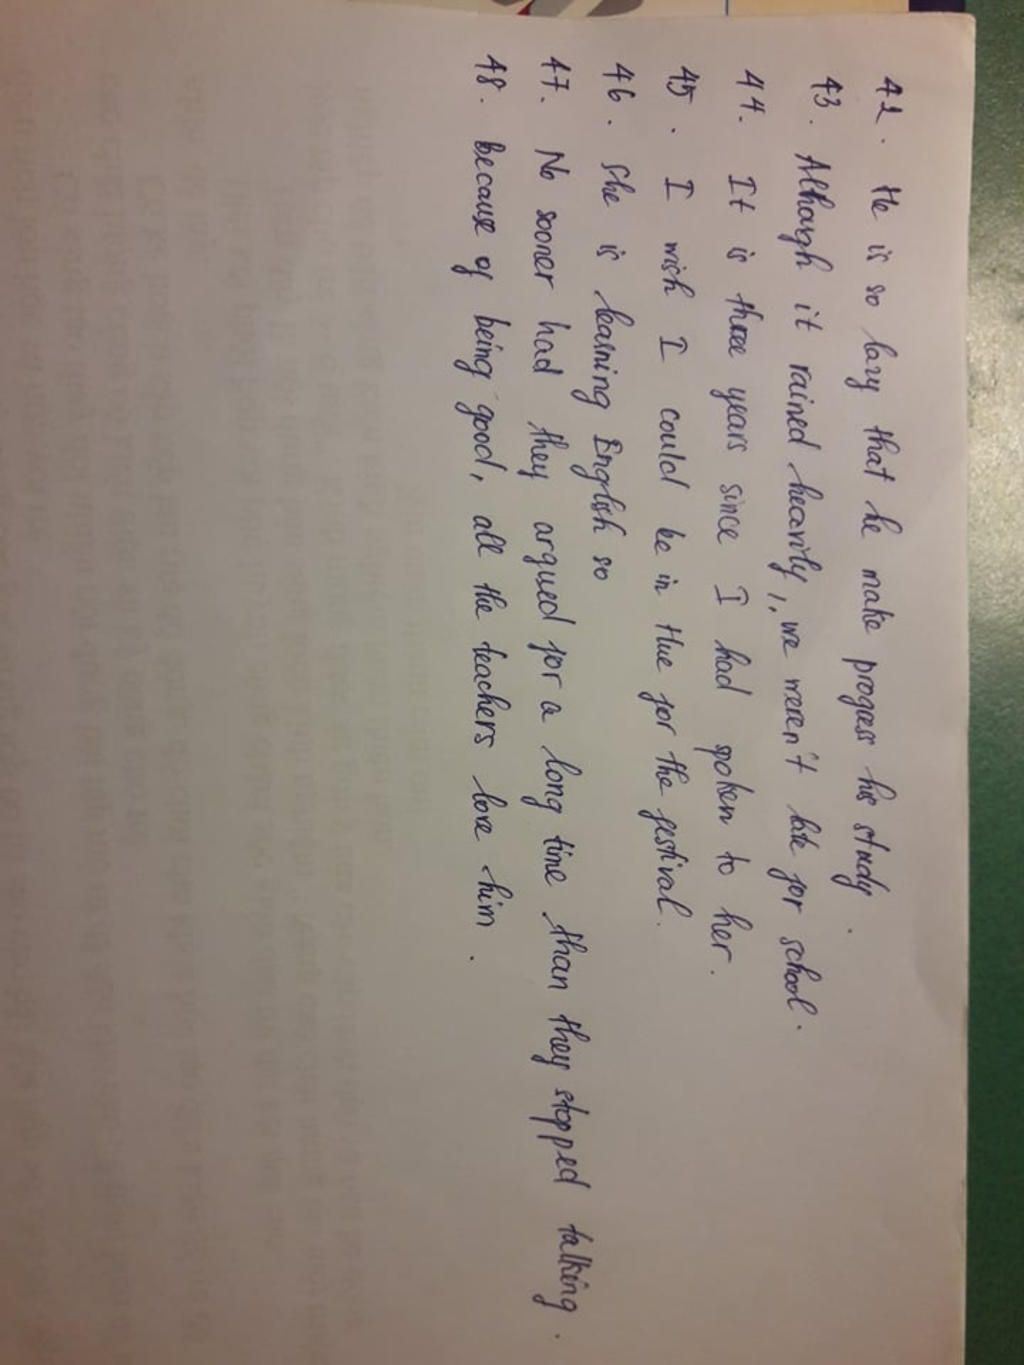 42. He is so lazy that he make progress his study.
43. Although it rained heavily, we weren't late for school.
44. It is three years since I had spoken to her.
45. I wish I could be in Hue for the festival.
46. She is learning English so
47. No sooner had they argued for a long time than they stopped talking.
48. because of being good, all the teachers love him.